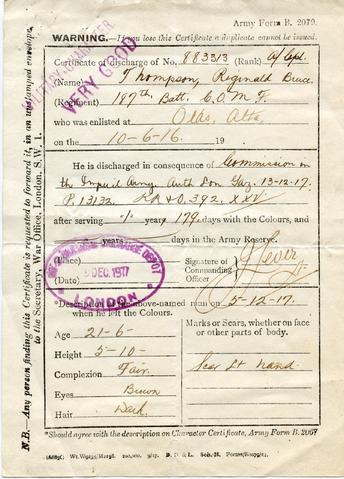 Army Form B. 2079.
WARNING.—If you lose this Certificate a duplicate cannot be issued.
MILITARY CHARACTER
VERY GOOD
Certificate of discharge of No. 883313 (Rank) A/Cpl.
(Name) Thompson, Reginald Bruce
(Regiment) 187th Batt. C.O.M.F.
who was enlisted at Olds, Alta.
on the 10-6-16 19
He is discharged in consequence of Commission in
the Imperial Army. Auth Lon Gaz. 13-12-17.
P. 13132. KR & O. 392. XXV
after serving "1" years 179 days with the Colours, and
years days in the Army Reserve.
(Place)
(Date)
DISCHARGE DEPOT
DEC. 1917
LONDON
Signature of
Commanding
Officer
*Description of the above-named man on 5-12-17.
when he left the Colours.
Age 21-6-
Height 5-10-
Complexion Fair.
Eyes Brown
Hair Dark
Marks or Scars, whether on face
or other parts of body.
Scar Lt hand
*Should agree with the description on Character Certificate, Army Form B. 2067
N.B.—Any person finding this Certificate is requested to forward it, in an unstamped envelope,
to the Secretary, War Office, London, S.W. 1.